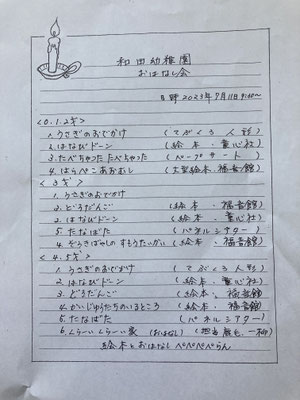 和田幼稚園
おはなし会
日時 2023年7月11日 9:40〜
<0.1.2才>
1.うさぎのおでかけ (てぶくろ人形)
2.はなびドーン (絵本・童心社)
3.たべちゃった たべちゃった (ペープサート)
4.はらぺこあおむし (大型絵本・福音館)
<3才>
1.うさぎのおでかけ
2.どろだんご (絵本・福音館)
3.はなびドーン (絵本・童心社)
5.たなばた (パネルシアター)
4.ぞうきばやしのすもうたいかい (絵本・福音館)
<4.5才>
1.うさぎのおでかけ (てぶくろ人形)
2.はなびドーン (絵本・童心社)
3.どろだんご (絵本・福音館)
4.かいじゅうたちのいるところ (絵本・
5.たなばた (パネルシアター)
6.くらーい くらーい (おはなし) (担当
絵本とおはなし ぺぺぺぺぺらん